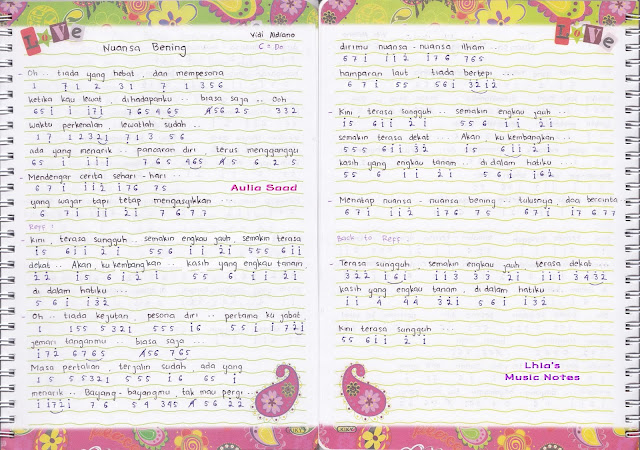 LOVE
Vidi Aldiano
Nuansa Bening
C = Do
- Oh.. tiada yang hebat, dan mempesona
1 7 1 2 3 1 7 1 3 5 6
ketika kau lewat, dihadapanku.. biasa saja.. Ooh
65 i i i7i 7 6 5 4 6 5 4 56 2 5 3 3 2
waktu perkenalan lewatlah sudah..
1 7 1 2 3 2 1 7 1 3 5 6
ada yang menarik.. pancaran diri terus mengganggu
65 i i i i 7 6 5 4 6 5 4 5 6 2 5
- Mendengar cerita sehari-hari...
6 7 i i i 2 i 7 6 7 5
Aulia Saad
yang wajar tapi tetap mengasyikkan ...
6 7 i i i 2 i 7 6 7 7
Reff :
- Kini, terasa sungguh.. semakin engkau jauh, semakin terasa
i5 6 i i 2 i 5 5 6 i i 2 i 5 5 5 6 i i
dekat.. Akan kukembangkan.. kasih yang engkau tanam
2 2 i 5 6 i 2 i 5 5 6 i i 2 i
di dalam hatiku...
5 6 i i 3 2
- Oh.. tiada kejutan pesona diri.. pertama ku jabat
1 1 5 5 5 3 2 1 5 5 5 i 6 5 5 i i 7 2 i
jemari tanganmu.. biasa saja...
i 7 2 6 7 6 5 4 56 7 6 5
Masa pertalian, terjalin sudah, ada yang
1 5 5 5 3 2 1 5 5 i 6 6 5 i
menarik.. Bayang-bayangmu, tak mau pergi...
i i 7 2 i 7 6 5 4 3 4 5 4 56 2 2
LOVE
dirimu nuansa-nuansa ilham..
6 7 i i i 2 i 7 6 7 6 5
hamparan laut, tiada bertepi ...
6 7 i 5 5 5 6 i 3 2 i 2
- Kini terasa sungguh.. semakin engkau jauh...
i5 6 i i 2 i 5 5 6 i i 2 i
semakin terasa dekat Akan kukembangkan...
5 5 5 6 i i 3 2 i 5 6 i 2 i
kasih yang engkau tanam.. di dalam hatiku...
5 5 6 i i 2 i 5 6 i i 3 2
- Menatap nuansa-nuansa bening.. tulusnya, doa bercinta
6 7 i i i 2 i 7 6 7 5 6 7 i i 7 6 7 7
Back to Reff:
- Terasa sungguh, semakin engkau jauh terasa dekat...
3 2 2 i 6 i i i 3 3 3 2 i i i i 3 4 3 2
kasih yang engkau tanam, di dalam hatiku...
i i 4 4 4 3 2 i 5 6 i i 3 2
Kini terasa sungguh...
5 5 6 i i 2 i
Lhia's
Music Notes